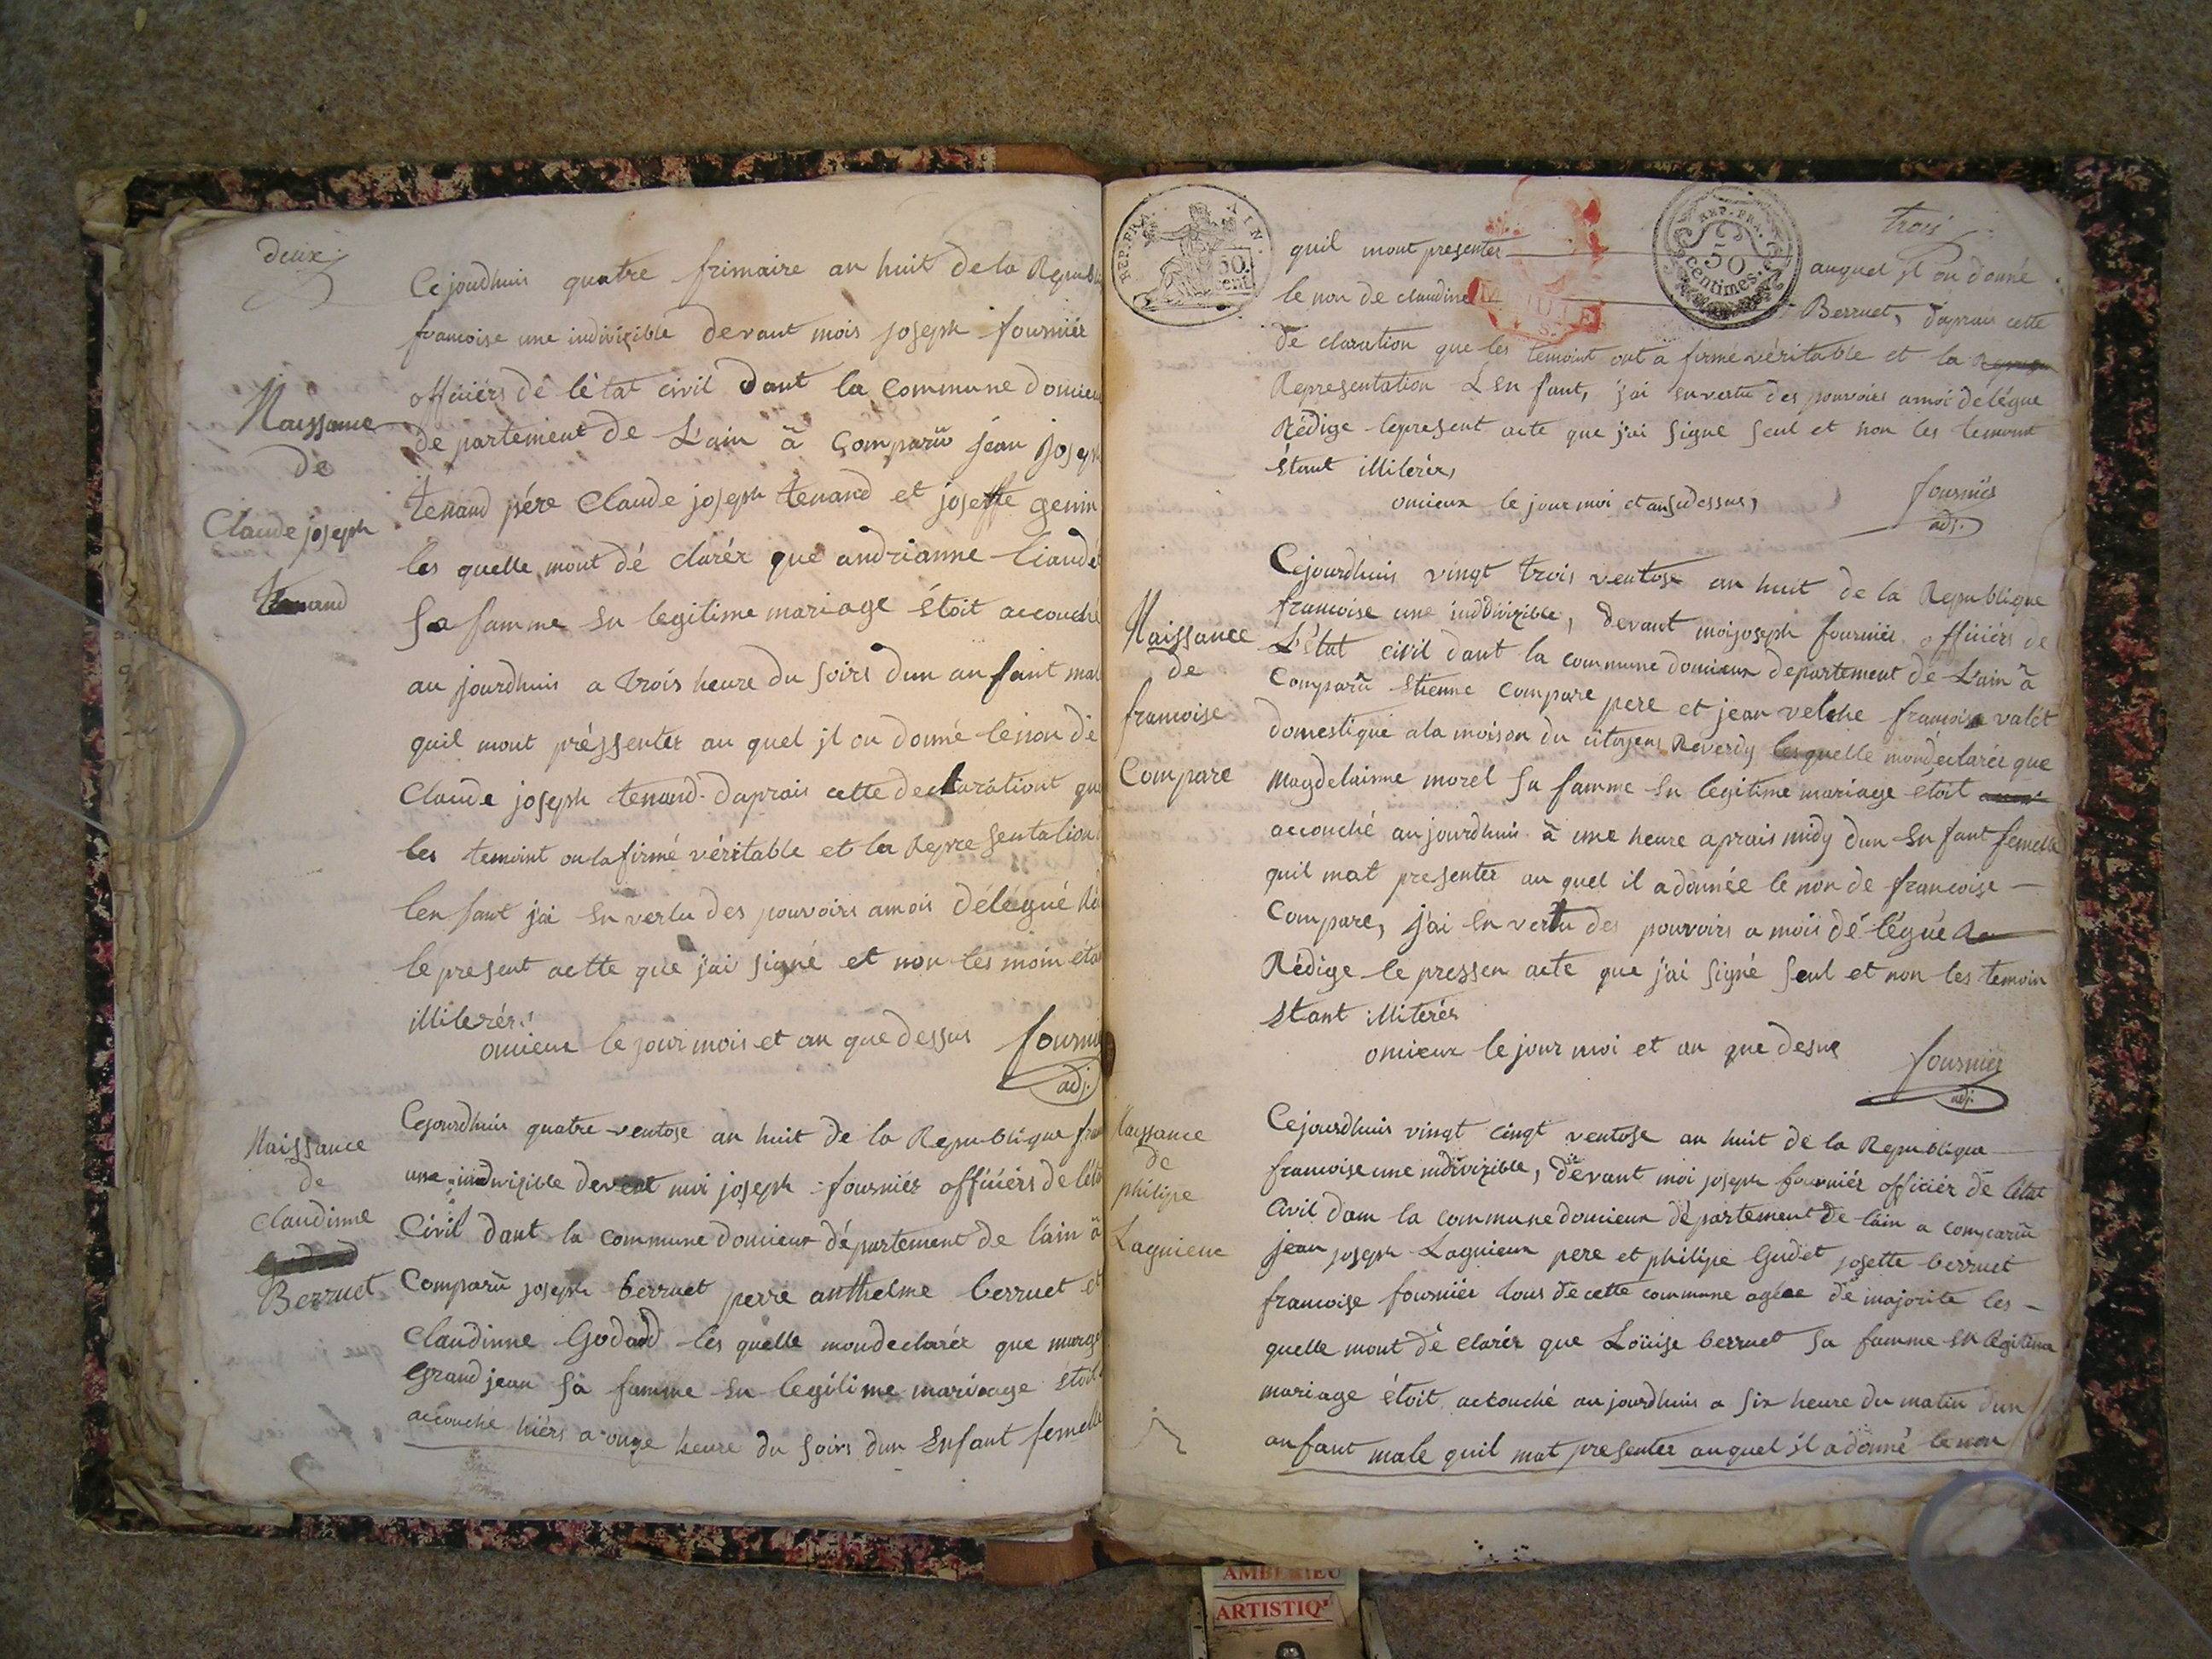 deux
Cejoudhuis quatre frimaire an huit de la Republi
francoise une indivizible devant mois joseph fournier
officiérs de létat civil dant la commune domieu
Naissance
de
Claude joseph
Tenand
departement de L'ain à comparu jean joseph
tenand pére Claude joseph tenand et josette genin
les quelle mont dé clarér que andrianne liaudet
sa famme en legitime mariage étoit accouché
au jourdhuis a trois heure du soirs dun anfant mal
quil mont préssenter au quel il on donné le non de
Claude joseph tenand daprais cette declarationt que
les temoint on lafirmé véritable et la Representation
lenfant jai en vertu des pouvoirs amois délégué Ré
le present actte que j'ai signé et non tes moin éta
illiterér.
omieux le jour mois et an que dessus
fournie
adj.
Naissance
de
Claudinne
Godard
Berruet
Cejourdhuis quatre ventose an huit de la Republique fran
une indivizible devent moi joseph fourniér officiérs de léta
Civil dant la commune domieux département de l'ain à
Comparu joseph berruet perre anthelme berruet et
Claudinne Godard les quelle mondeclarér que marge
grand jean sa famme en legitime mariage étoit
accouché hiérs a onze heure du soirs dun Enfant femelle
REP. FRA.
50.
cent.
REP. FR.
50
centimes.
trois
quil mont presenter
auquel il on donné
le non de claudine
Berruet, daprais cette
de claration que les temoint ont a firmé véritable et la
Representation Lenfant, j'ai en vertu des pouvoirs amoi délégue
Rédige lepresent acte que j'ai signé seul et non les temoint
étant illiterér,
omieux le jour moi et an sudessus,
fourniér
adj.
Naissance
de
francoise
Compare
Cejourdhuis vingt trois ventose an huit de la Republique
francoise une inddivizible, devant moi joseph fourniér officiérs de
L'état civil dant la commune domieux departement de L'ain à
Comparu Etienne Compare pere et jean velche francoise valét
domestique a la moison du citoyens Reverdy les quelle mondeclarér que
Magdelainne morel sa famme en legitime mariage etoit
accouché aujourdhuis à une heure aprais midy dun Enfant femelle
quil mat presenter au quel il a donnée le non de francoise
Compare, j'ai en vertu des pouvoirs a mois délégué
Rédige le pressen acte que j'ai signé seul et non les temoin
Etant illiterér
omieux le jour moi et an que desus
fourniér
adj.
Naissance
de
philipe
Lagnieux
Cejourdhuis vingt cinqt ventose an huit de la Republique
francoise une indivizible, devant moi joseph fourniér officiér de létat
Civil dam la commune domieux département de l'ain a comparu
jean joseph Lagnieux pere et philipe Godet josette berruet
francoise fourniér tous de cette commune agée de majorite les
quelle mont dé clarér que Loüise berruet sa famme en légitime
mariage étoit accouché aujourdhuis a six heure du matin dun
anfant male quil mat presenter auquel il a donné le non
AMBERIEU
ARTISTIQ